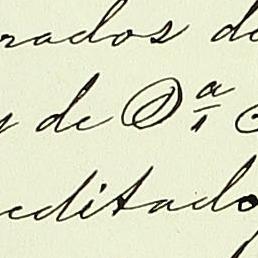 rados de
y de Dª
editado